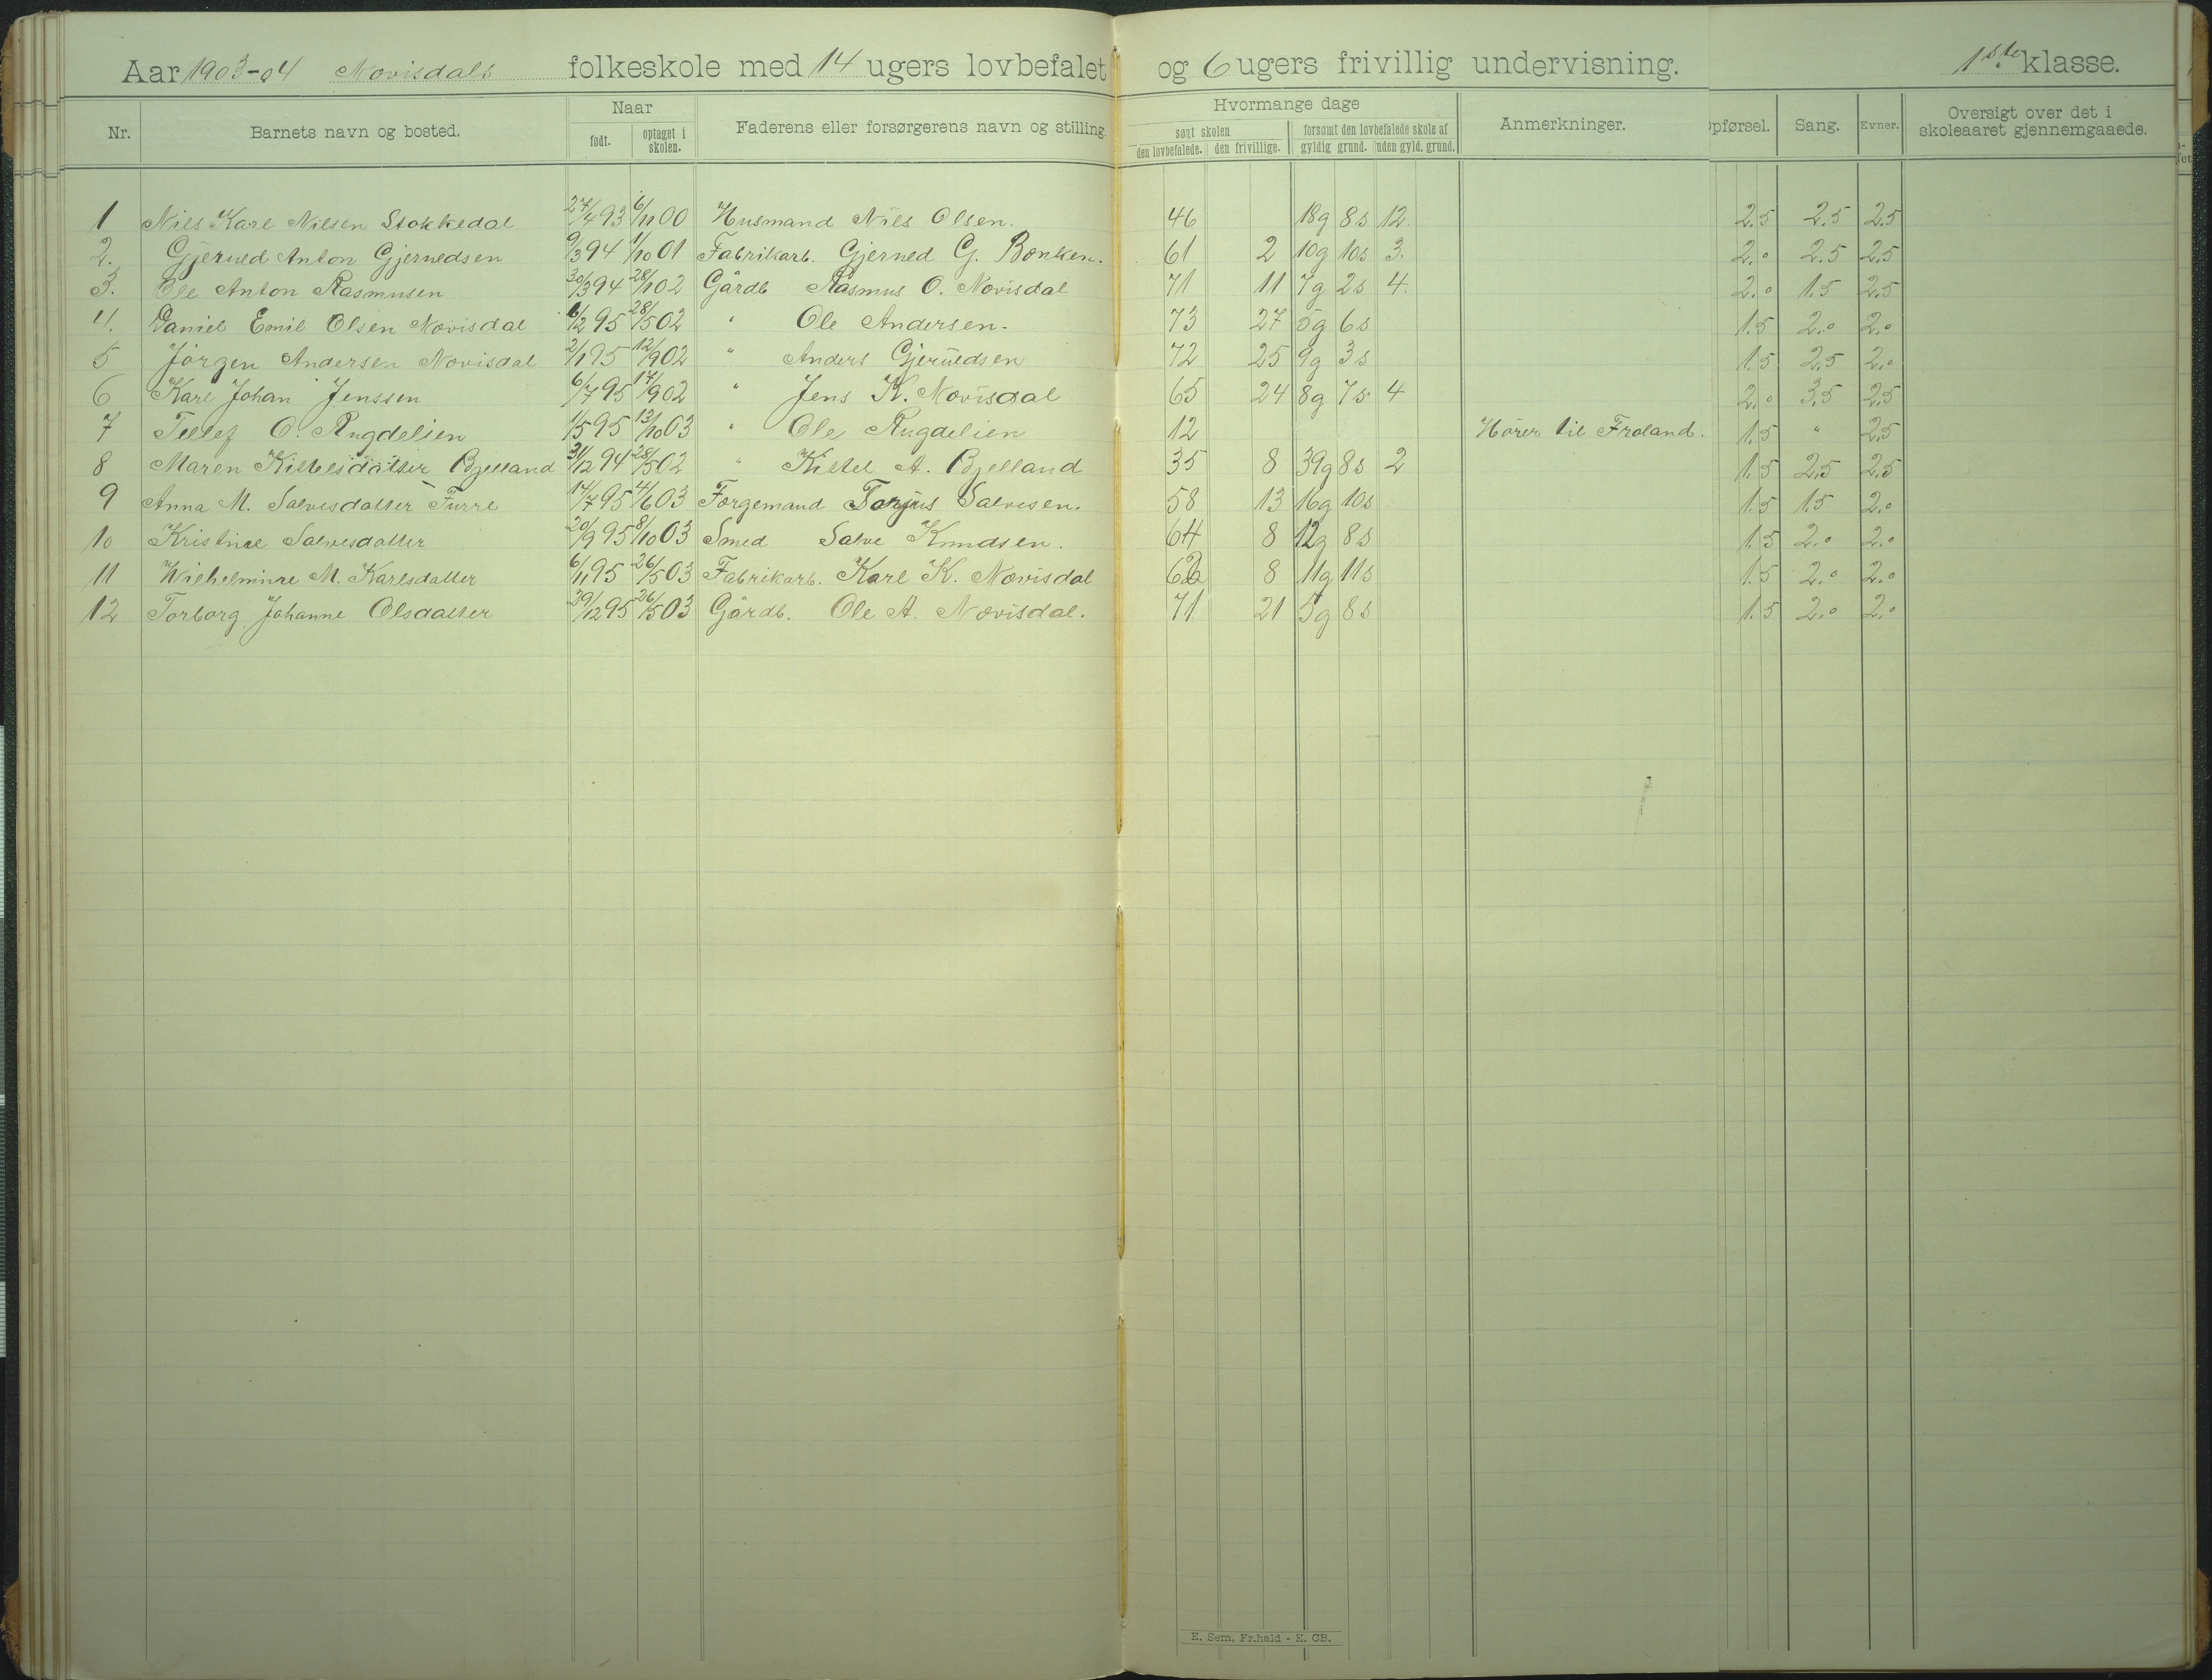 Aar 1903-04 Novisdals folkeskole med 14 ugers lovbefalet og 6 ugers frivillig undervisning. 1ste klasse.
Nr. Barnets navn og bosted. Naar født. optaget i skolen. Faderens eller forsørgerens navn og stilling. Hvormange dage søgt skolen den lovbefalede. den frivillige. forsømt den lovbefalede skole af gyldig grund. uden gyld. grund. Anmerkninger. Opførsel. Sang. Evner. Oversigt over det i skoleaaret gjennemgaaede.
1 Nils Karl Nilsen Stokkedal 27/4 93 6/11 00 Husmand Nils Olsen. 46 18g 8s 12 2.5 2.5 2.5
2. Gjerued Anton Gjeruedsen 9/3 94 1/10 01 Fabrikarb. Gjerued G. Bonken. 61 2 10g 10s 3. 2.0 2.5 2.5
3. Ole Anton Rasmusen 30/3 94 28/1 02 Gårdb Rasmus O. Novisdal 71 11 7g 2s 4. 2.0 1.5 2.5
4. Daniel Emil Olsen Novisdal 6/2 95 28/5 02 " Ole Andersen. 73 27 5g 6s 1.5 2.0 2.0
5 Jörgen Andersen Novisdal 2/1 95 12/9 02 " Anders Gjeruldsen 72 25 9g 3s 1.5 2.5 2.0
6 Karl Johan Jenssen 6/7 95 17/9 02 " Jens K. Novisdal 65 24 8g 7s 4 2.0 3.5 2.5
7 Tellef O. Rugdelien 1/5 95 13/10 03 " Ole Rugdelien 12 Hører til Froland. 1.5 " 2.5
8 Maren Kittelsdatter Bjelland 31/12 94 28/5 02 " Kittel A. Bjelland 35 8 39g 8s 2 1.5 2.5 2.5
9 Anna M. Salvesdatter Furre 14/7 95 4/6 03 Forgemand Torjus Salvesen. 58 13 16g 10s 1.5 1.5 2.0
10 Kristine Salvesdatter 20/9 95 8/10 03 Smed Salve Knudsen. 64 8 12g 8s 1.5 2.0 2.0
11 Wilhelmine M. Karlsdatter 6/11 95 26/5 03 Fabrikarb. Karl K. Novisdal 62 8 11g 11s 1.5 2.0 2.0
12 Torborg Johanne Olsdatter 29/12 95 26/5 03 Gårdb. Ole A. Novisdal. 71 21 5g 8s 1.5 2.0 2.0
E. Sem, Fr.hald - E. CB.